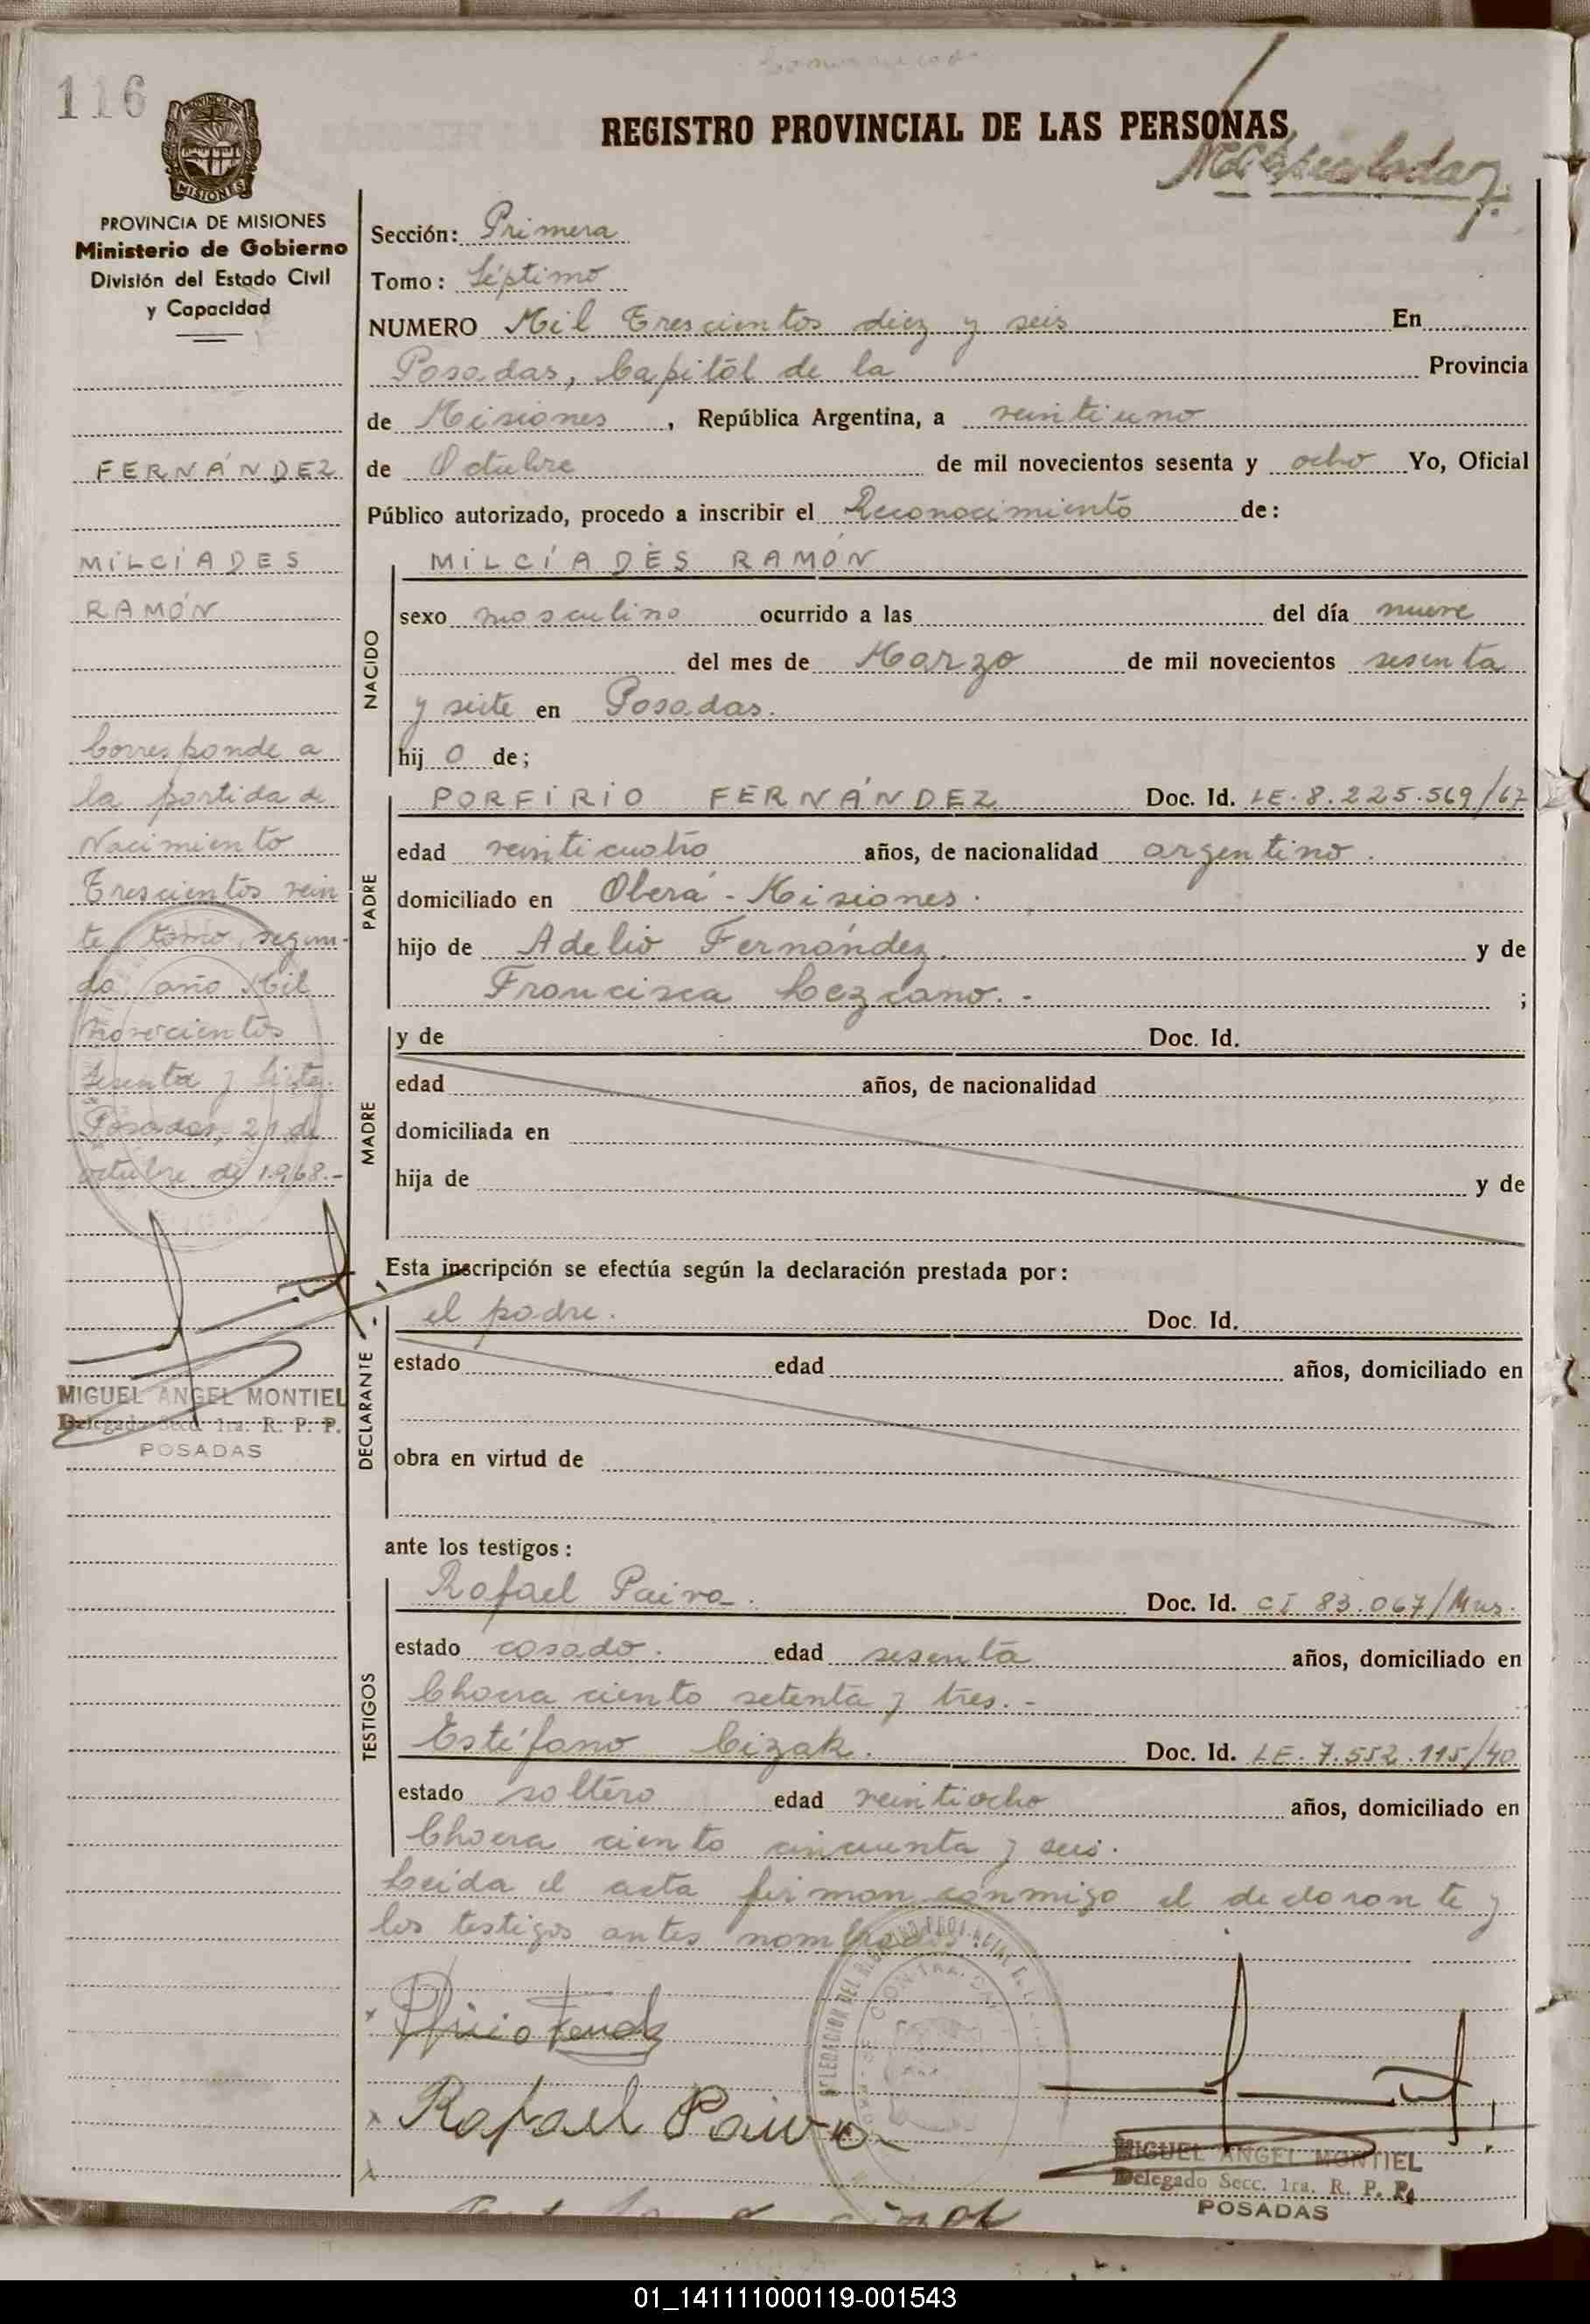 116
PROVINCIA DE
MISIONES
REGISTRO PROVINCIAL DE LAS PERSONAS
PROVINCIA DE MISIONES
Ministerio de Gobierno
División del Estado Civil
y Capacidad
FERNÁNDEZ
MILCÍADES
RAMÓN
Corresponde a
la partida de
Nacimiento
Trescientos vein
te, tomo segun-
do año Mil
Novecientos
Sesenta y Siete.
Posadas, 21 de
octubre de 1968.-
MIGUEL ANGEL MONTIEL
Delegado Secc. 1ra. R. P. P.
POSADAS
Sección: Primera
Tomo: Séptimo
NUMERO Mil Trescientos diez y seis En
Posadas, Capital de la Provincia
de Misiones, República Argentina, a veintiuno
de Octubre de mil novecientos sesenta y ocho Yo, Oficial
Público autorizado, procedo a inscribir el Reconocimiento de:
NACIDO
MILCÍADES RAMÓN
sexo masculino ocurrido a las del día nueve
del mes de Marzo de mil novecientos sesenta
y siete en Posadas.
hij o de;
PADRE
PORFIRIO FERNÁNDEZ Doc. Id. LE. 8.225.569/67
edad veinticuatro años, de nacionalidad argentino.
domiciliado en Oberá - Misiones.
hijo de Adelio Fernández. y de
Francisca Lezcano. - ;
MADRE
y de Doc. Id.
edad años, de nacionalidad
domiciliada en
hija de y de
Esta inscripción se efectúa según la declaración prestada por:
DECLARANTE
el padre. Doc. Id.
estado edad años, domiciliado en
obra en virtud de
ante los testigos:
TESTIGOS
Rafael Paiva. Doc. Id. CI 83.067/Mns.
estado casado. edad sesenta años, domiciliado en
Chacra ciento setenta y tres. -
Estéfano Cizak. Doc. Id. LE. 7.552.115/40
estado soltero edad veintiocho años, domiciliado en
Chacra ciento cincuenta y seis.
Leída el acta firman conmigo el declarante y
los testigos antes nombrados.
Rafael Paiva
MIGUEL ANGEL MONTIEL
Delegado Secc. 1ra. R. P. P.
POSADAS
01_141111000119-001543